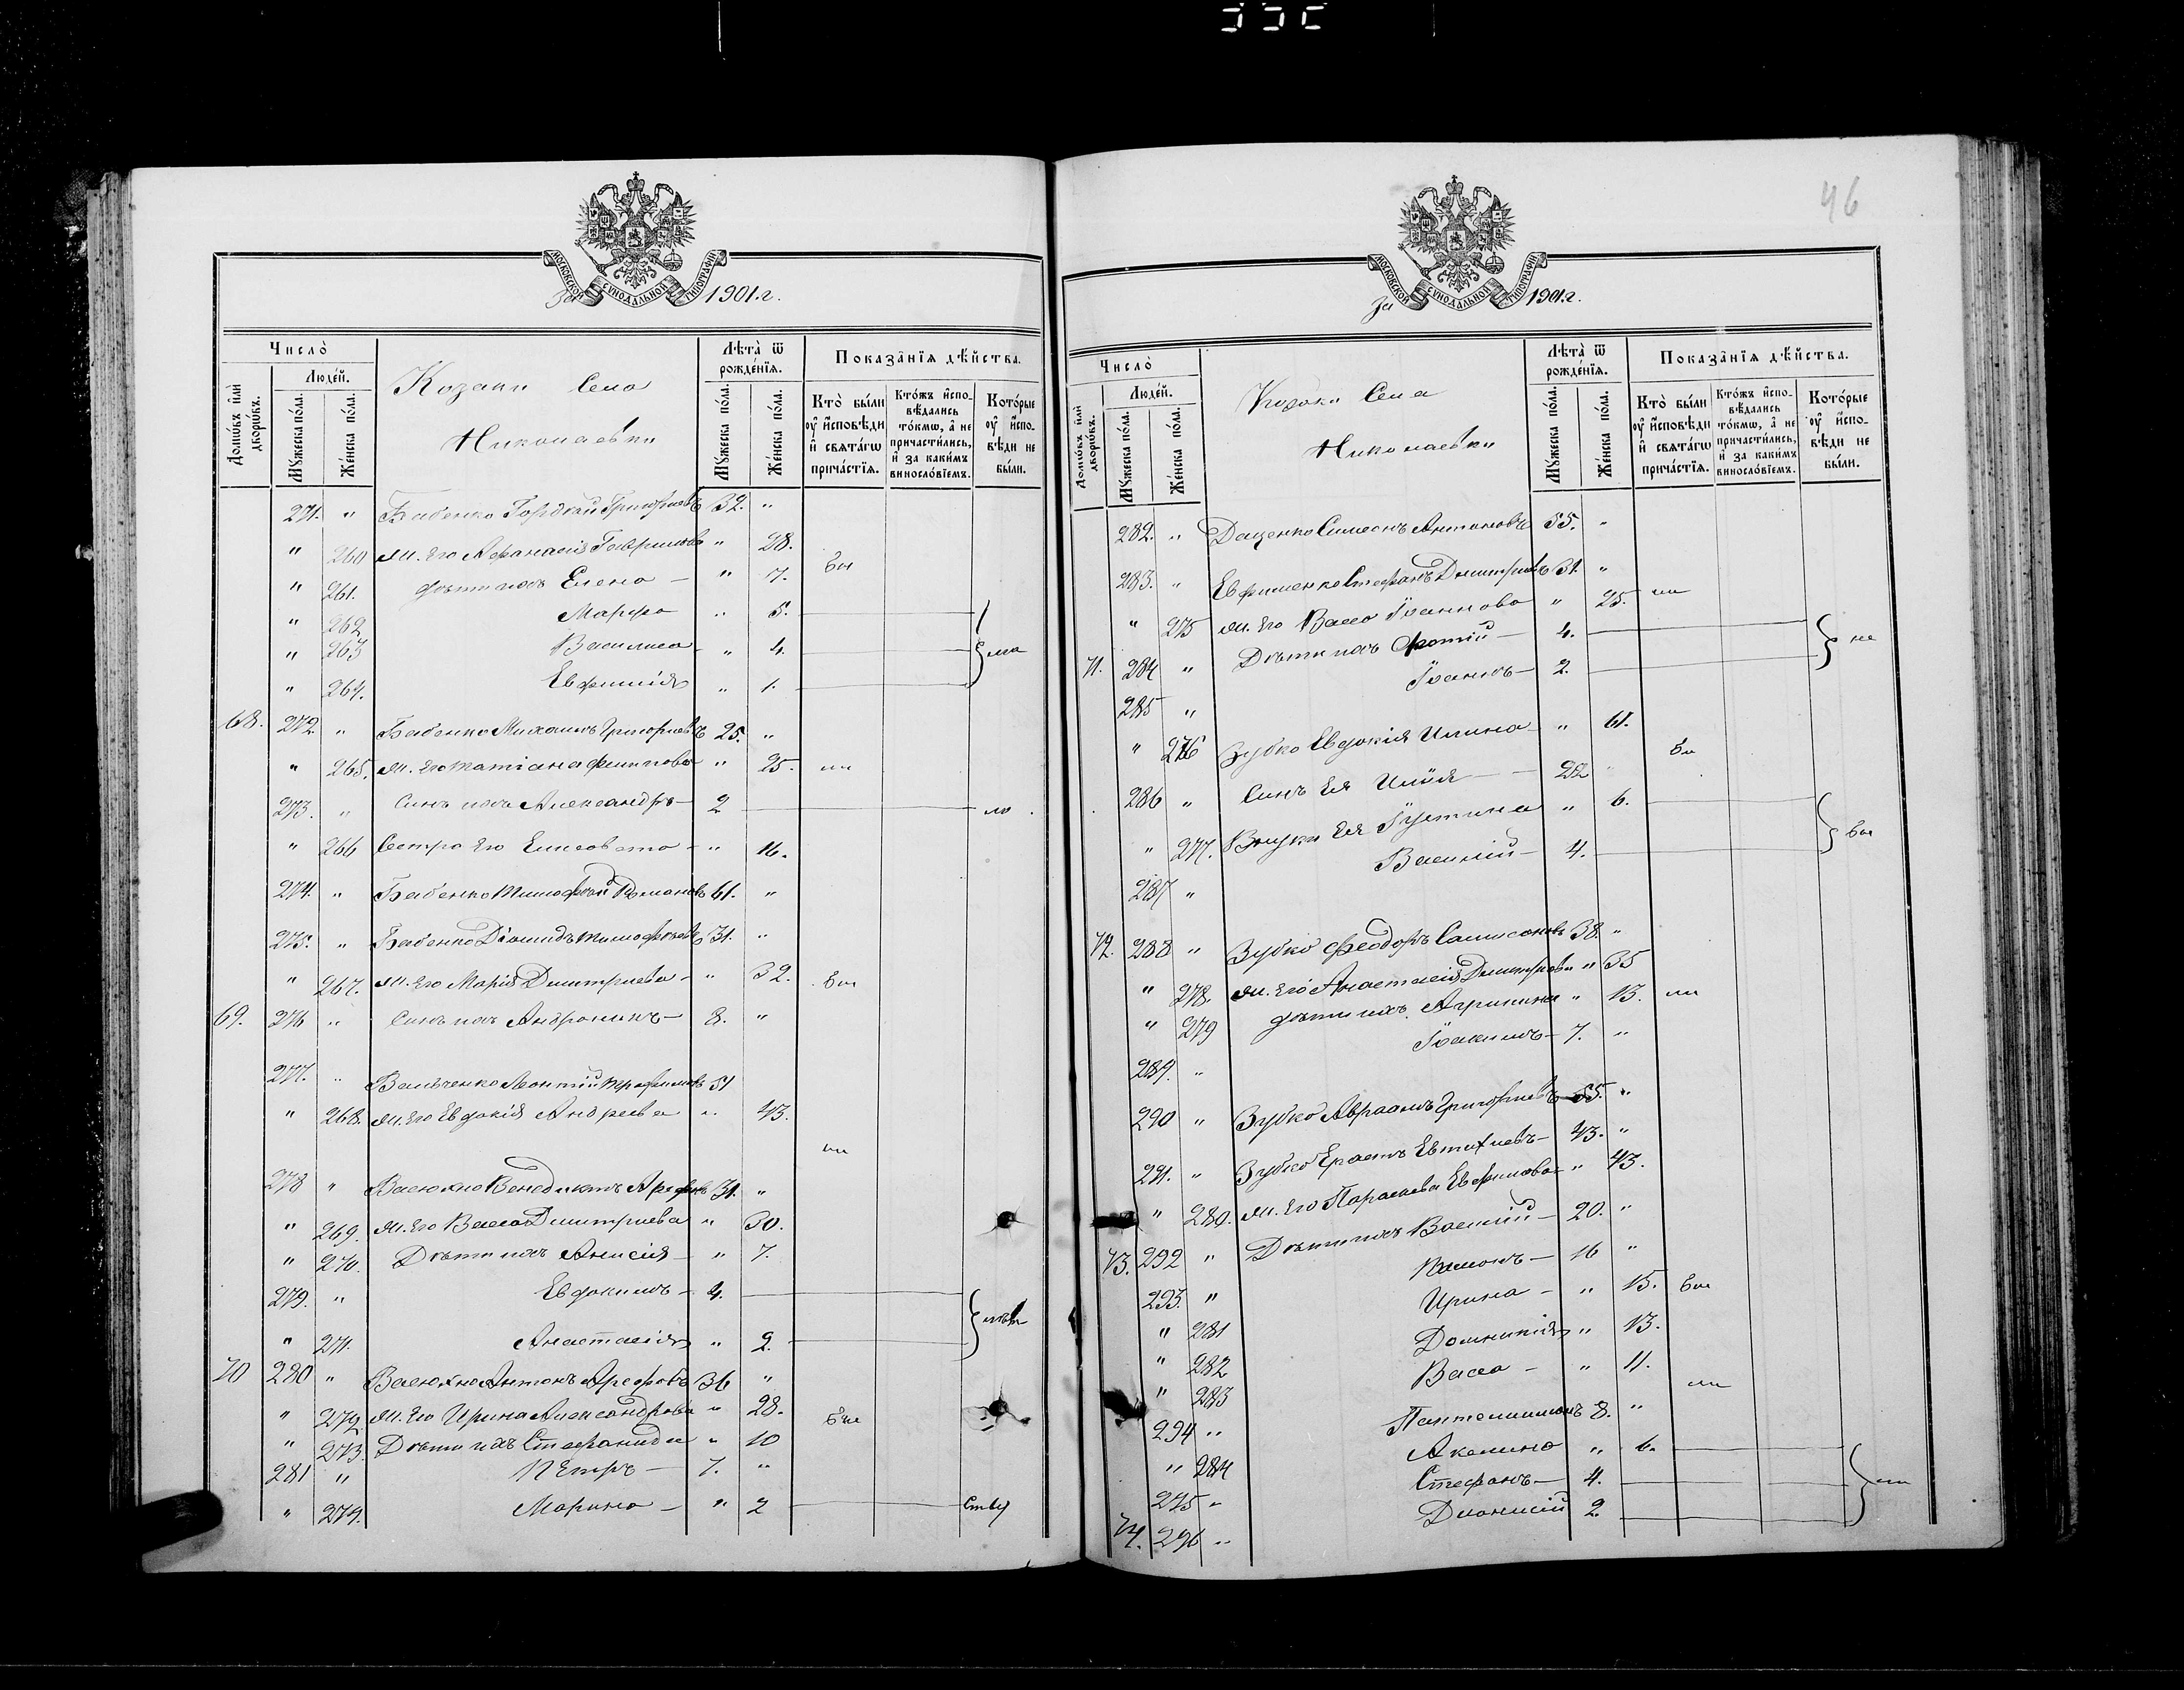 46
МОСКОВСКОЙ СѴНОДАЛЬНОЙ ТИПОГРАФІИ
За 1901.г.
Число̀
Домѡ́въ и҆лѝ дворѡ́въ.
Люде́й.
Мꙋ́жеска по́ла.
Же́нска по́ла.
Козаки Села
Николаевки
Лѣта̀ ѿ рожде́нїѧ.
Мꙋ́жеска по́ла.
Же́нска по́ла.
Показа̑нїѧ дѣ́йства.
Кто̀ бы́ли ᲂу҆ и҆сповѣ́ди и҆ свѧта́гѡ прича́стїѧ.
Кто́жъ и҆сповѣ́дались то́кмѡ, а҆ не причасти́лись, и҆ за каки́мъ винослові́емъ.
Кото́рые ᲂу҆ и҆сповѣ́ди не бы́ли.
271. " Бабенко Гордѣй Григорьевъ 32. "
" 260 ж. его Афанасія Гаврилова " 28.
бы
" 261. дѣти ихъ Елена - " 7.
" 262 Марфа " 5.
" 263 Василиса " 4. ма
" 264. Евфимія " 1.
68. 272. " Бабенко Михаилъ Григорьевъ 25. "
" 265. ж. его Татіана Филипова " 25. ли
273. " Сынъ ихъ Александръ 2 ло
" 266 Сестра его Елисавета " 16.
274. " Бабенко Тимофѣй Романовъ 61. "
275. " Бабенко Діомидъ Тимофѣевъ 31. "
" 267. ж. его Марія Димитриева " 32. бы
69. 276 " Сынъ ихъ Андроникъ 8. "
277. " Вальченко Леонтій Трофимовъ 51
" 268. ж. его Евдокія Андреева " 43.
ли
278 " Васюхно Венедиктъ Арефовъ 31. "
" 269. ж. его Васса Димитриева " 30.
" 270. Дѣти ихъ Анисія " 7.
279. " Евдокимъ 4.
" 271. Анастасія " 2.
70 280 " Васюхно Антонъ Арефовъ 36 "
" 272 ж. его Ирина Александрова " 28. бы
" 273. Дѣти ихъ Стефанида " 10
281 " Петръ 7. "
" 274. Марина " 2
МОСКОВСКОЙ СѴНОДАЛЬНОЙ ТИПОГРАФІИ
За 1901.г.
Число̀
Домѡ́въ и҆лѝ дворѡ́въ.
Люде́й.
Мꙋ́жеска по́ла.
Же́нска по́ла.
Козаки Села
Николаевки
Лѣта̀ ѿ рожде́нїѧ.
Мꙋ́жеска по́ла.
Же́нска по́ла.
Показа̑нїѧ дѣ́йства.
Кто̀ бы́ли ᲂу҆ и҆сповѣ́ди и҆ свѧта́гѡ прича́стїѧ.
Кто́жъ и҆сповѣ́дались то́кмѡ, а҆ не причасти́лись, и҆ за каки́мъ винослові́емъ.
Кото́рые ᲂу҆ и҆сповѣ́ди не бы́ли.
282. " Даценко Симеонъ Антоновъ 55. "
283. " Евфименко Стефанъ Димитриевъ 31. "
" 275 ж. его Васса Іоаннова " 25. ли
71. 284 " Дѣти ихъ Фотій 4. не
285 " Іоаннъ 2.
" 276 Зубко Евдокія Илина " 61.
бы
286 " Сынъ ея Илія 22 "
" 277. Внуки ея Іустина " 6.
бы
287 " Василій 4.
72. 288 " Зубко Феодоръ Сампсоновъ 38. "
" 278. ж. его Анастасія Димитриева " 35
" 279 дѣти ихъ Агрипина " 13. ли
289. " Іоакимъ 7. "
290 " Зубко Авраамъ Григорьевъ 55. "
291. " Зубко Ерастъ Евтихиевъ 43. "
" 280. ж. его Параскева Евфимова " 43.
73. 292 " Дѣти ихъ Василій 20. "
293. " Памонъ 16 "
" 281 Ирина " 15. бы
" 282 Домникія " 13.
" 283 Васса " 11.
ли
294 " Пантелиимонъ 8. "
" 284 Акелина " 6.
295 " Стефанъ 4. ли
74. 296 " Дионисій 2.